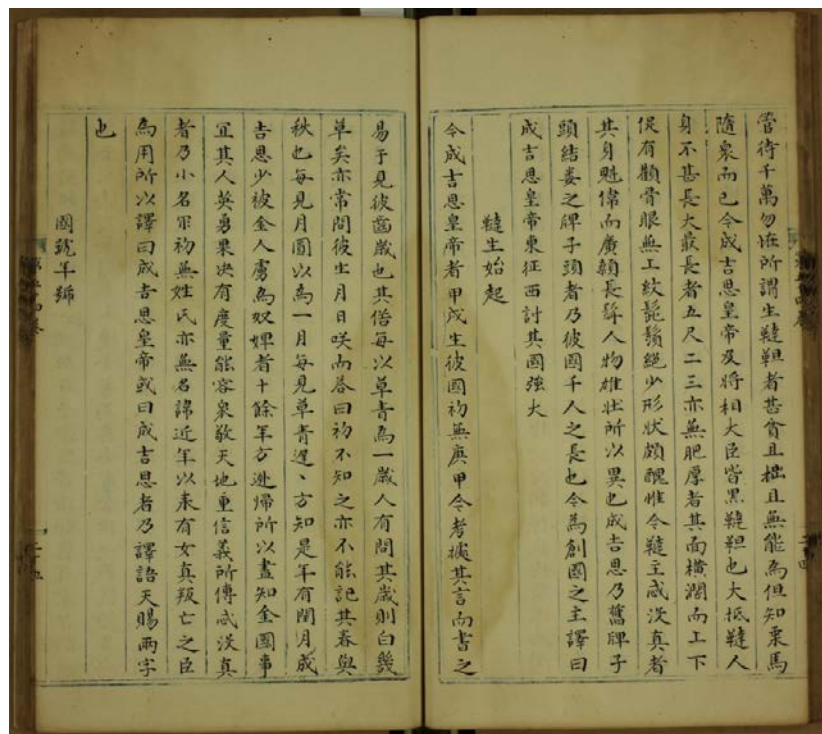 管待千萬勿誑所謂生韃靼者甚貧且拙且無能為但知乗馬
隨衆而已今成吉思皇帝及將相大臣皆黑韃靼也大抵韃人
身不甚長大最長者五尺二三亦無肥厚者其面橫濶而上下
促有顴骨眼無上紋髭鬚絕少形狀頗醜惟今韃主忒沒真者
其身魁偉而廣顙長髯人物雄壯所以異也成吉思乃舊牌子
頭結婁之牌子頭者乃彼國千人之長也今為創國之主譯曰
成吉思皇帝東征西討其國強大
韃主始起
今成吉思皇帝者甲戌生彼國初無庚甲今考據其言而書之
易于見彼齒歲也其俗每以草青為一歲人有問其歲則曰幾
草矣亦常問彼生月日咲而答曰初不知之亦不能記其春與
秋也每見月圓以為一月每見草青遲、方知是年有閏月成
吉思少被金人虜為奴婢者十餘年方逃歸所以盡知金國事
宜其人英勇果决有度量能容衆敬天地重信義所傳忒沒真
者乃小名耳初無姓氏亦無名諱近年以来有女真叛亡之臣
為用所以譯曰成吉思皇帝或曰成吉思者乃譯語天賜兩字
也
國號年號